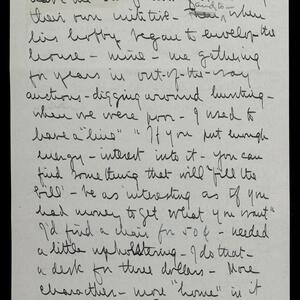 their own initative - when
his hobby began to envelop the
house - mine - me gathering
for years in out-of-the-way
auctions - digging around hunting -
when we were poor - I used to
have a "line" "If you put enough
energy - interest into it - you can
find something that will "fill the
bill" - be as interesting as if you
had money to get what you want"
I'd find a chair for 50¢ - needed
a little upholstering - I do that -
a desk for three dollars - More
character - more "home" in it